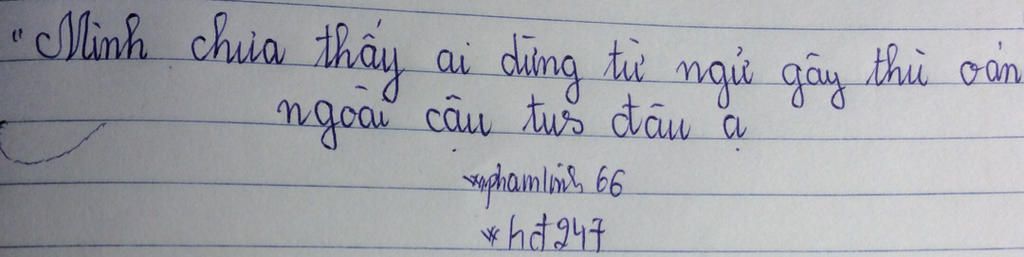 "Mình chưa thấy ai dùng từ ngữ gây thù oán
ngoài cậu tus đâu ạ
*phamlinh 66
*hđ247